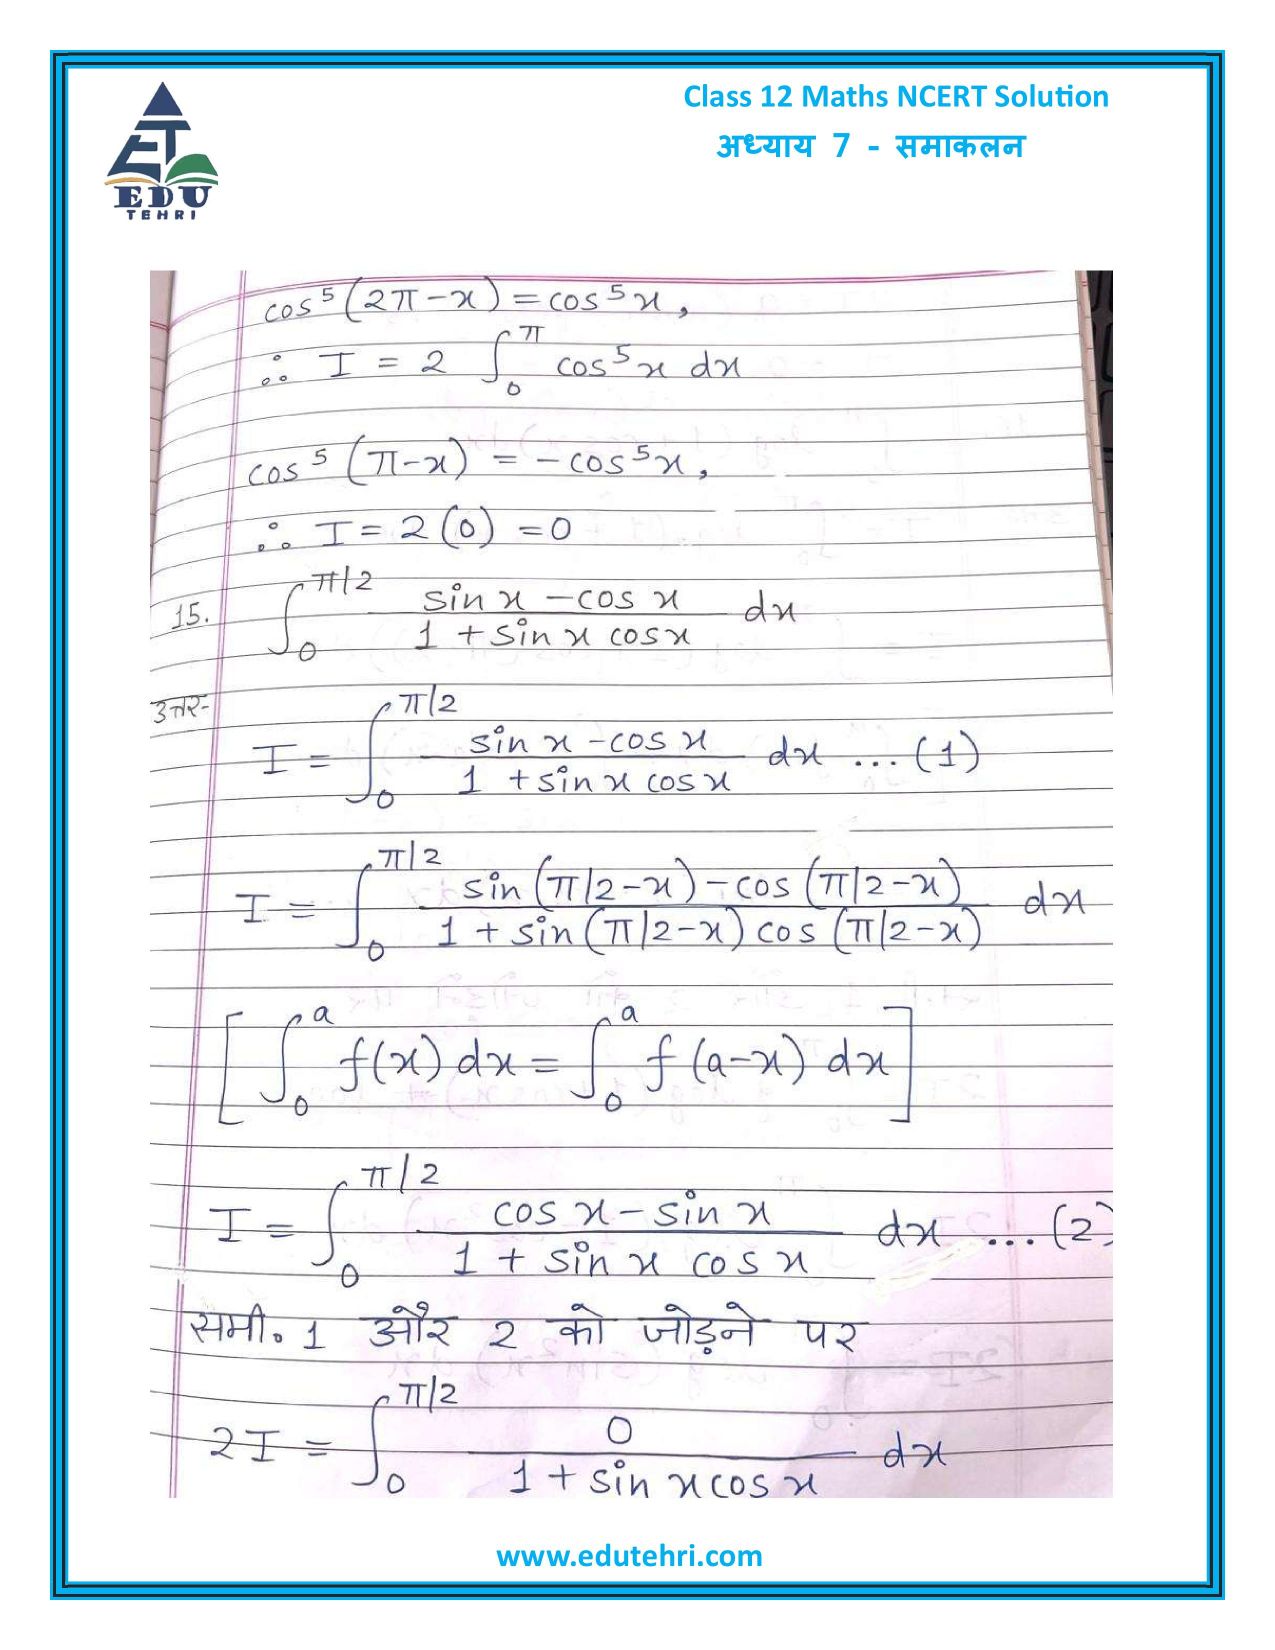 Class 12 Maths NCERT Solution
अध्याय 7 - समाकलन
EDU
TEHRI
cos⁵(2π-x) = cos⁵x,
∴ I = 2 ∫₀^π cos⁵x dx
cos⁵(π-x) = -cos⁵x,
∴ I = 2(0) = 0
15. ∫₀^{π/2} (sin x - cos x)/(1 + sin x cos x) dx
उत्तर-
I = ∫₀^{π/2} (sin x - cos x)/(1 + sin x cos x) dx ... (1)
I = ∫₀^{π/2} (sin(π/2-x) - cos(π/2-x))/(1 + sin(π/2-x) cos(π/2-x)) dx
[∫₀^a f(x) dx = ∫₀^a f(a-x) dx]
I = ∫₀^{π/2} (cos x - sin x)/(1 + sin x cos x) dx ... (2)
समी. 1 और 2 को जोड़ने पर
2I = ∫₀^{π/2} 0/(1 + sin x cos x) dx
www.edutehri.com